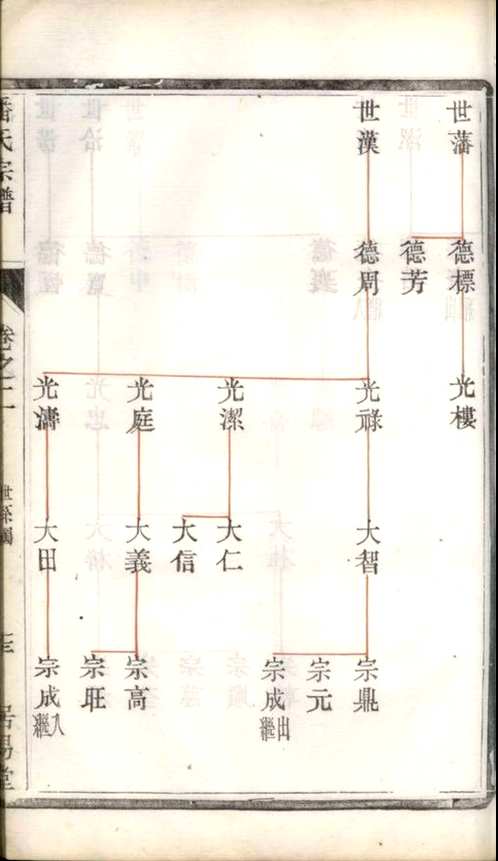 世藩
世漢
德標
德芳
德周
光樓
光祿
光潔
光庭
光濤
大智
大仁
大信
大義
大田
宗鼎
宗元
宗成出繼
宗高
宗旺
宗成入繼
潘氏宗譜
卷之二
世系圖
居易堂